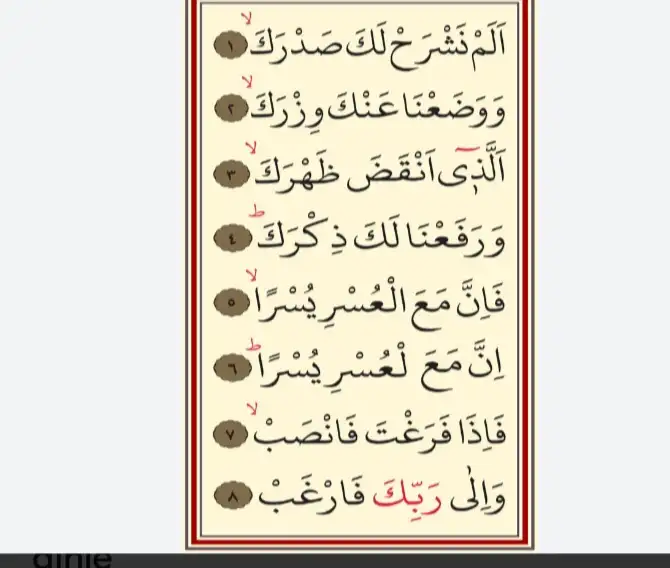 اَلَمْ نَشْرَحْ لَكَ صَدْرَكَۙ ﴿١﴾
وَوَضَعْنَا عَنْكَ وِزْرَكَۙ ﴿٢﴾
اَلَّذ۪ٓى اَنْقَضَ ظَهْرَكَۙ ﴿٣﴾
وَرَفَعْنَا لَكَ ذِكْرَكَۜ ﴿٤﴾
فَاِنَّ مَعَ الْعُسْرِ يُسْرًاۙ ﴿٥﴾
اِنَّ مَعَ لْعُسْرِ يُسْرًاۜ ﴿٦﴾
فَاِذَا فَرَغْتَ فَانْصَبْۙ ﴿٧﴾
وَاِلٰى رَبِّكَ فَارْغَبْ ﴿٨﴾